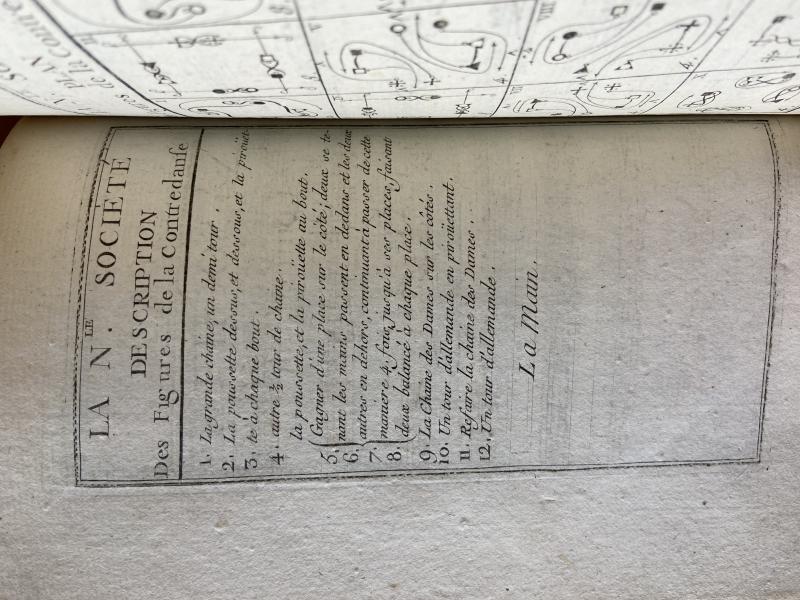 LA N.LE SOCIETÉ
DESCRIPTION
Des Figures de la Contredanse
1. La grande chaine, un demi tour.
2. La poussette dessus, et dessous, et la pirouet-
3. te à chaque bout.
4. autre ½ tour de chaine.
la poussette, et la pirouette au bout.
5. Gagner d'une place sur le côté; deux se te-
6. nant les mains, passent en dedans et les deux
7. autres en déhors, continuant à passer de cette
8. maniere 4. fois, jusqu'à ses places, faisant
deux balancé à chaque place.
9. La Chaine des Dames sur les côtés.
10. Un tour d'allemande en pirouettant.
11. Refaire la chaine des Dames.
12. Un tour d'allemande.
La Main.